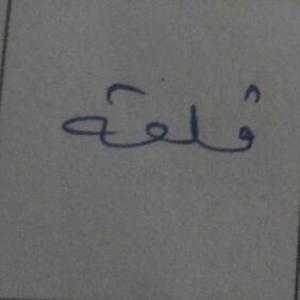 قلعة